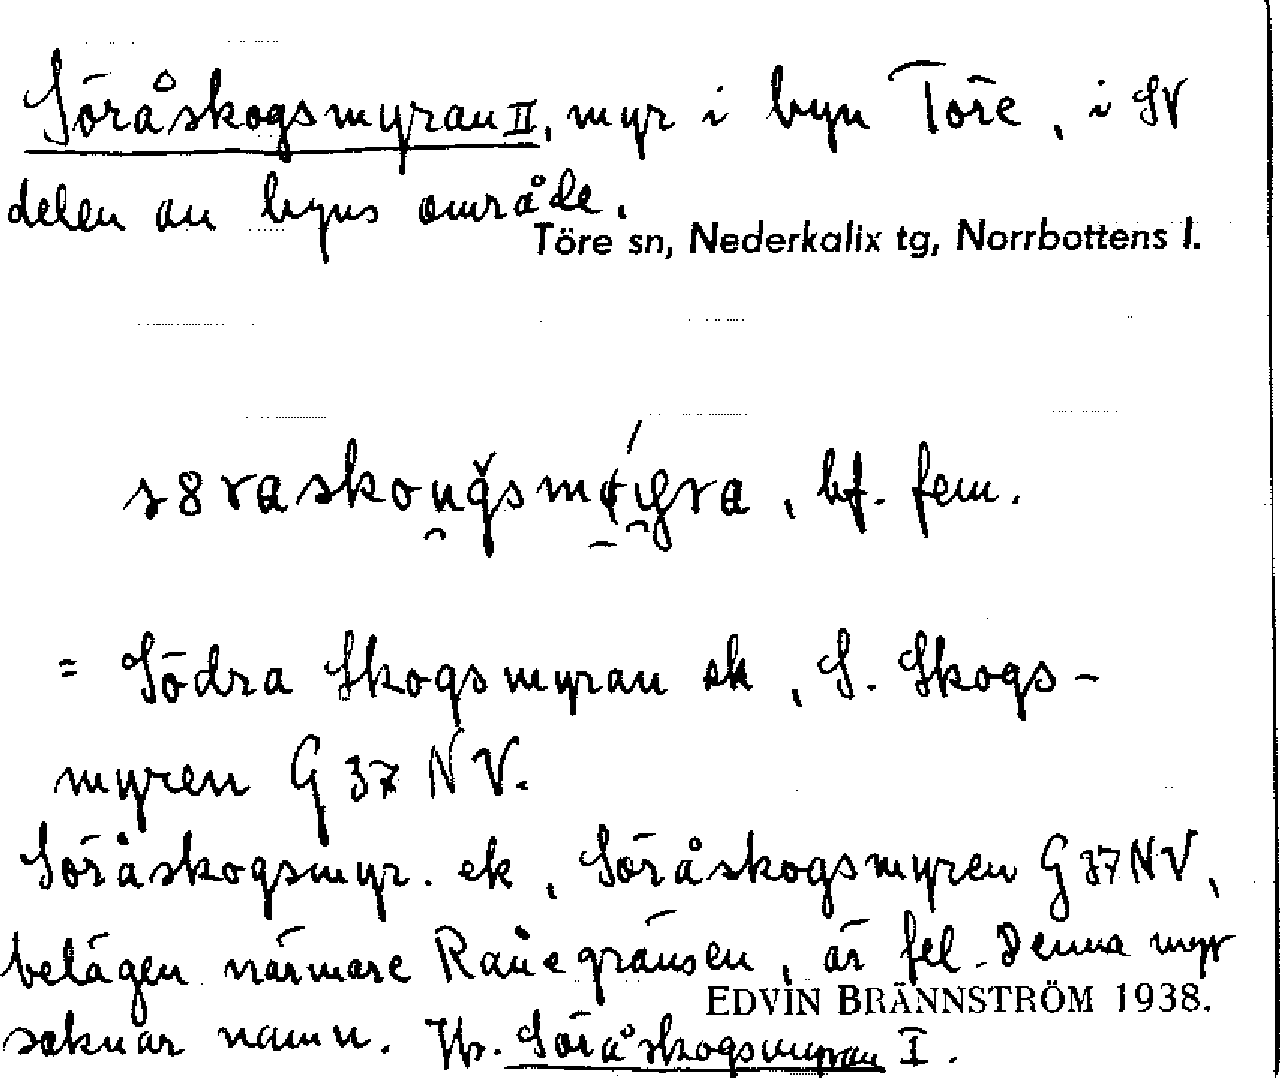 Söråskogsmyran II, myr i byn Töre, i SV
delen av byns område.
Töre sn, Nederkalix tg, Norrbottens l.
bf. fem.
= Södra Skogsmyran ek, S. Skogs-
myren G 37 NV.
Söråskogsmyr. ek, Söråskogsmyren G 37 NV,
belägen närmare Rånegränsen, är fel. Denna myr
EDVIN BRÄNNSTRÖM 1938.
saknar namn. Jfr. Söråskogsmyran I.